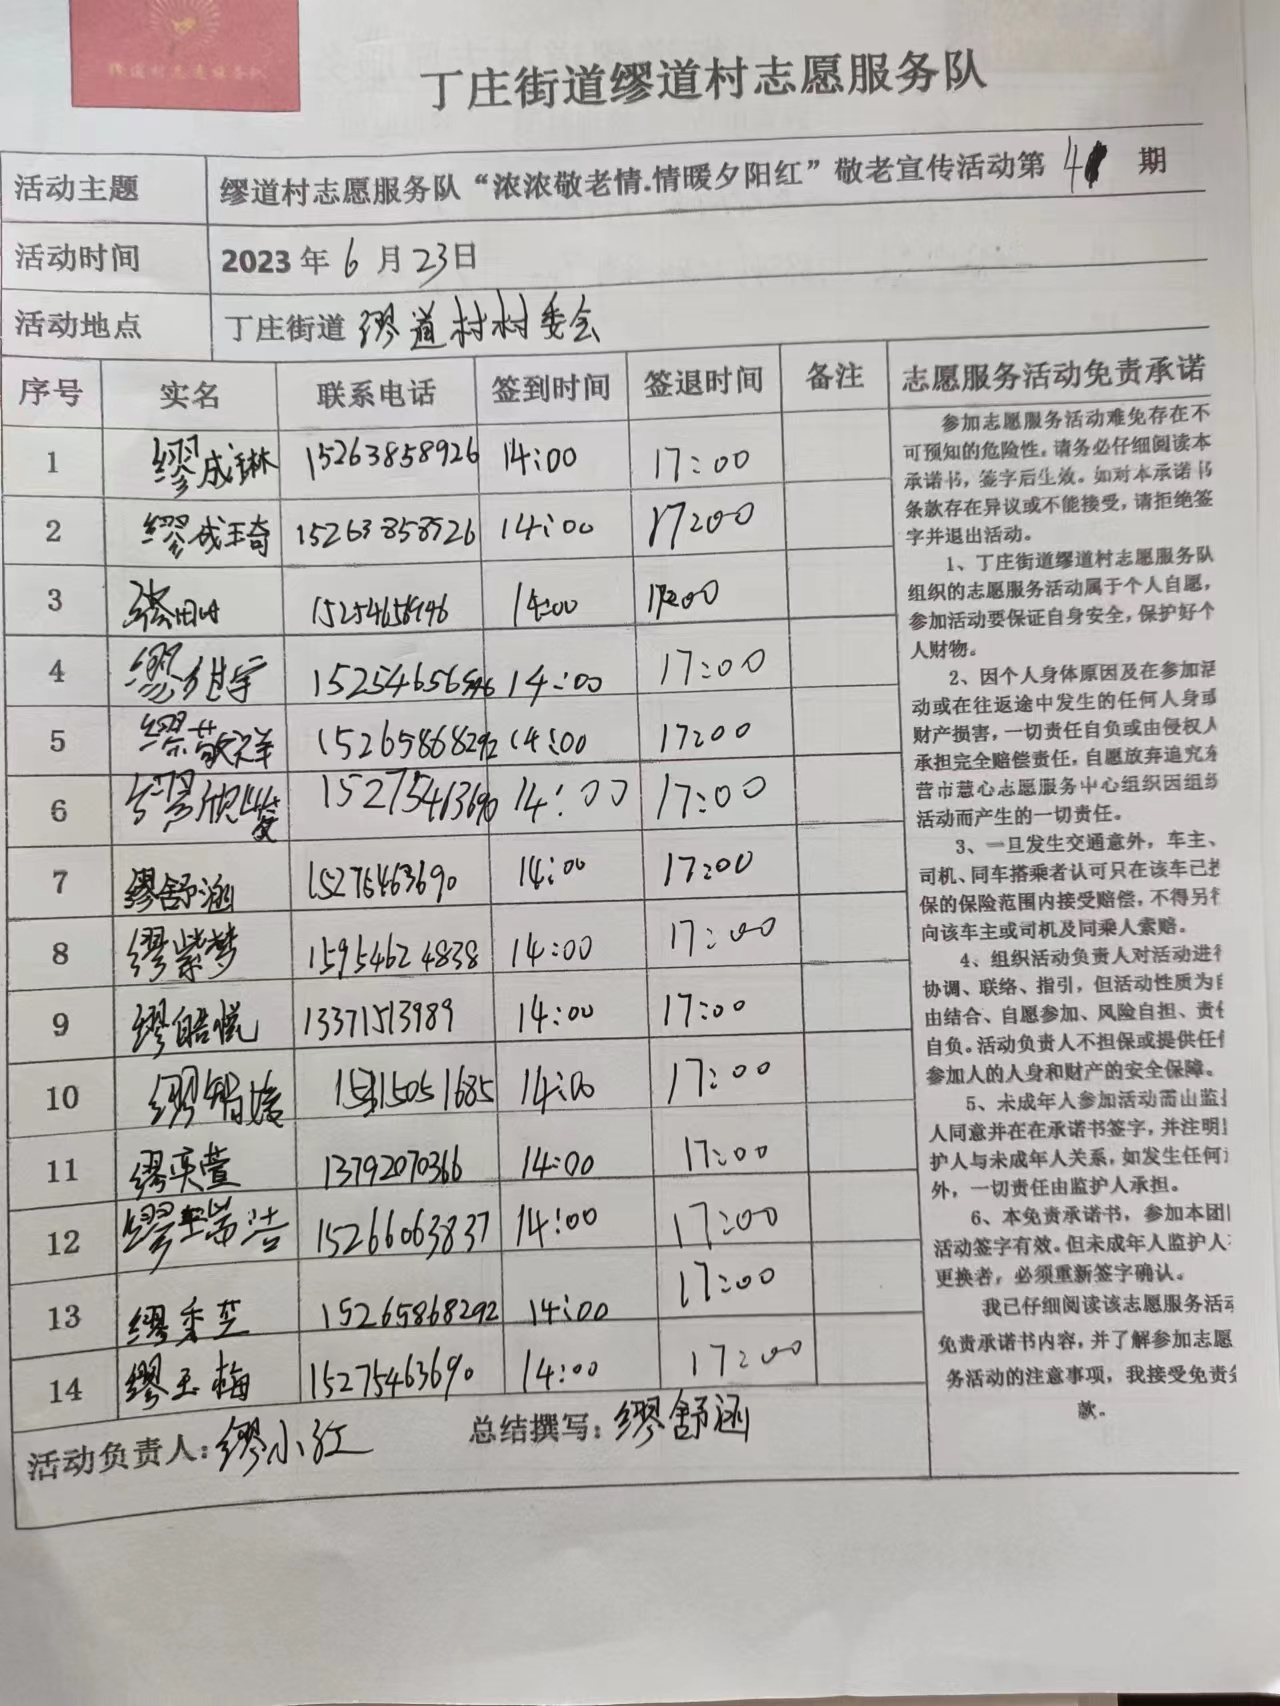 缪道村志愿服务队
丁庄街道缪道村志愿服务队
活动主题 缪道村志愿服务队“浓浓敬老情.情暖夕阳红”敬老宣传活动第 4 期
活动时间 2023 年 6 月 23日
活动地点 丁庄街道 缪道村村委会
序号 实名 联系电话 签到时间 签退时间 备注
1 缪成琳 15263858926 14:00 17:00
2 缪成琦 15263858926 14:00 17:00
3 15254658946 14:00 17:00
4 缪继宇 14:00 17:00
5 缪敬祥 15265868292 14:00 17:00
6 缪欣 15275463690 14:00 17:00
7 缪舒涵 15275463690 14:00 17:00
8 缪紫梦 15954624838 14:00 17:00
9 缪皓悦 13371513989 14:00 17:00
10 缪智媛 14:00 17:00
11 缪奕萱 13792070366 14:00 17:00
12 缪 15266063837 14:00 17:00
13 缪秀芝 15265868292 14:00 17:00
14 缪玉梅 15275463690 14:00 17:00
活动负责人:缪小红 总结撰写:缪舒涵
志愿服务活动免责承诺
参加志愿服务活动难免存在不
可预知的危险性。请务必仔细阅读本
承诺书，签字后生效。如对本承诺书
条款存在异议或不能接受，请拒绝签
字并退出活动。
1、丁庄街道缪道村志愿服务队
组织的志愿服务活动属于个人自愿，
参加活动要保证自身安全，保护好个
人财物。
2、因个人身体原因及在参加活
动或在往返途中发生的任何人身或
财产损害，一切责任自负或由侵权人
承担完全赔偿责任，自愿放弃追究东
营市慧心志愿服务中心组织因组织
活动而产生的一切责任。
3、一旦发生交通意外，车主、
司机、同车搭乘者认可只在该车已投
保的保险范围内接受赔偿，不得另行
向该车主或司机及同乘人索赔。
4、组织活动负责人对活动进行
协调、联络、指引，但活动性质为自
由结合、自愿参加、风险自担、责任
自负。活动负责人不担保或提供任何
参加人的人身和财产的安全保障。
5、未成年人参加活动需由监护
人同意并在在承诺书签字，并注明监
护人与未成年人关系，如发生任何意
外，一切责任由监护人承担。
6、本免责承诺书，参加本团队
活动签字有效。但未成年人监护人
更换者，必须重新签字确认。
我已仔细阅读该志愿服务活动
免责承诺书内容，并了解参加志愿
务活动的注意事项，我接受免责条
款。